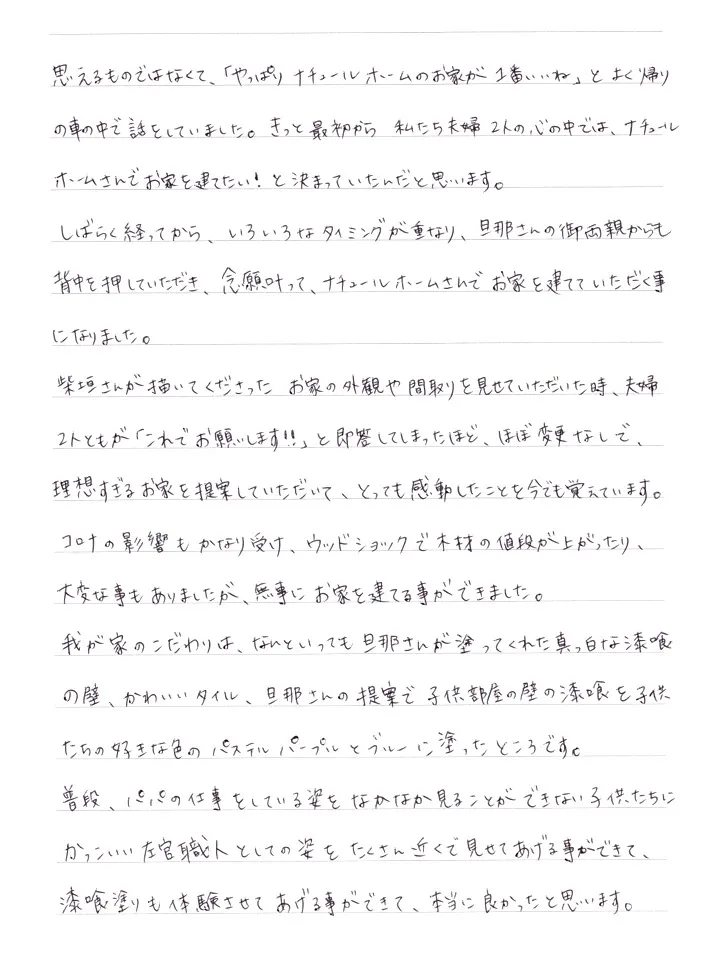 思えるものではなくて、「やっぱり ナチュールホームのお家が 1番いいね」と よく帰り
の車の中で話をしていました。きっと最初から 私たち夫婦 2人の心の中では、ナチュール
ホームさんでお家を建てたい！と決まっていたんだと思います。
しばらく経ってから、いろいろなタイミングが重なり、旦那さんの御両親からも
背中を押していただき、念願叶って、ナチュールホームさんで お家を建てていただく事
になりました。
柴垣さんが描いてくださった お家の外観や間取りを見せていただいた時、夫婦
2人ともが「これでお願いします!!」と即答してしまったほど、ほぼ変更なしで、
理想すぎるお家を提案していただいて、とっても感動したことを今でも覚えています。
コロナの影響もかなり受け、ウッドショックで木材の値段が上がったり、
大変な事もありましたが、無事に お家を建てる事ができました。
我が家のこだわりは、なんといっても旦那さんが塗ってくれた真っ白な漆喰
の壁、かわいいタイル、旦那さんの提案で子供部屋の壁の漆喰を子供
たちの好きな色のパステルパープルとブルーに塗ったところです。
普段、パパの仕事をしている姿を なかなか見ることができない子供たちに
かっこいい左官職人としての姿を たくさん近くで見せてあげる事ができて、
漆喰塗りも体験させてあげる事ができて、本当に良かったと思います。